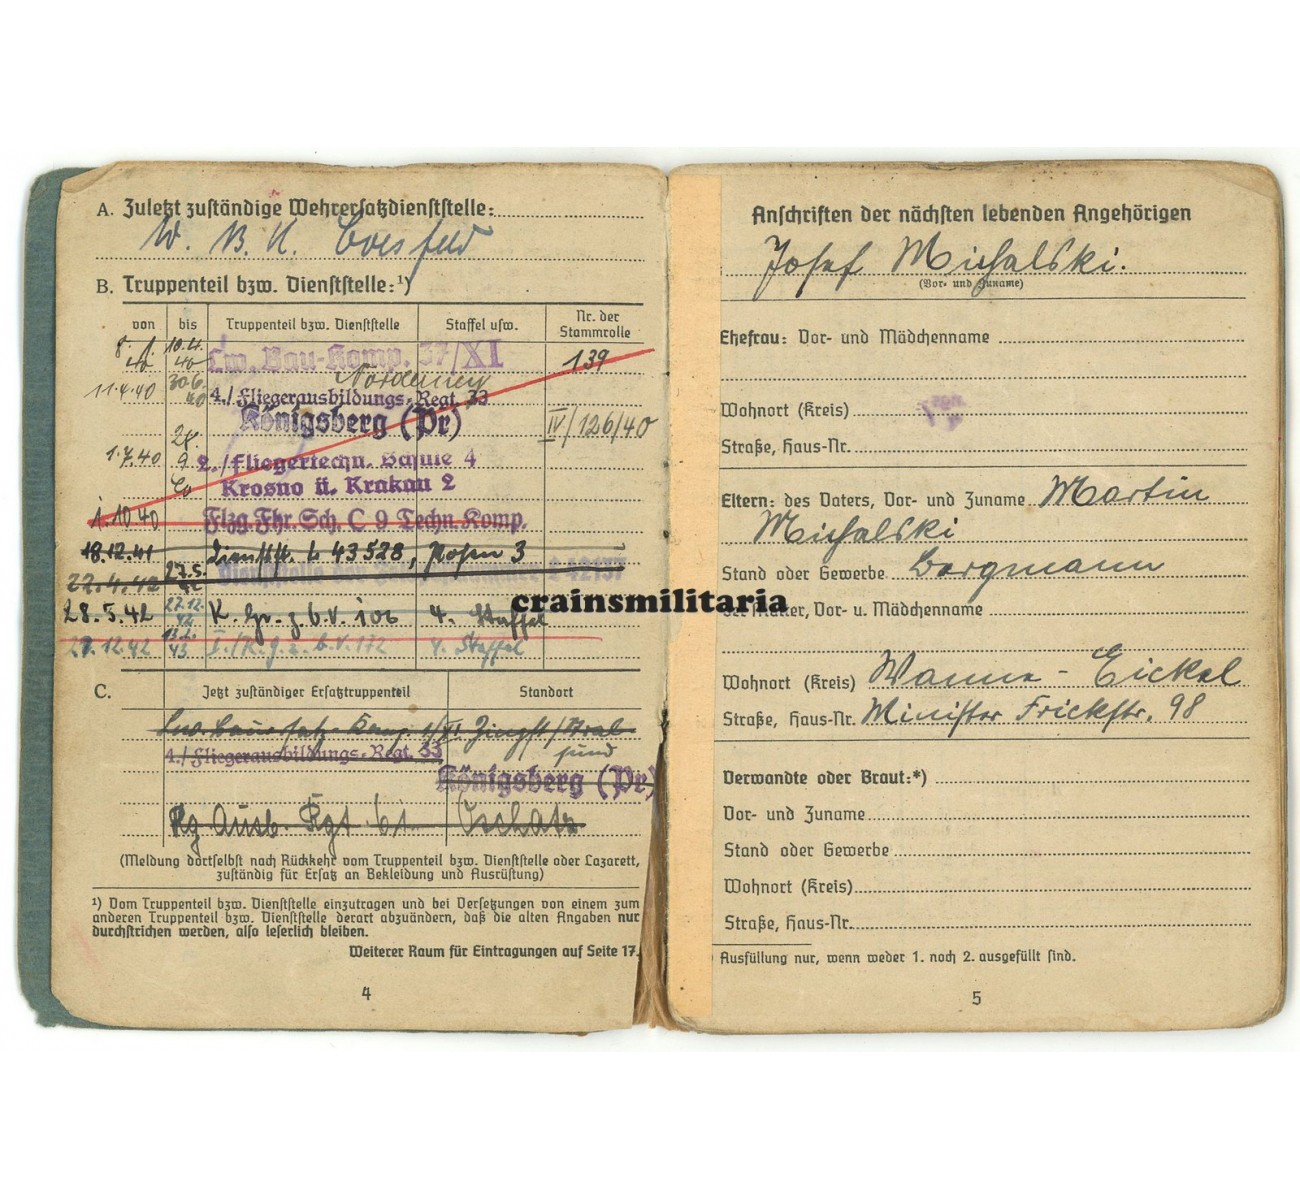 A. Zuletzt zuständige Wehrersatzdienststelle:
W. B. K. Coesfeld
B. Truppenteil bzw. Dienststelle:¹)
von bis Truppenteil bzw. Dienststelle Staffel usw. Nr. der Stammrolle
8. 1. 40 10.4. 40 Lw. Bau-Komp. 37/XI 139
Norderney
11.4.40 30.6. 40 4./Fliegerausbildungs-Regt. 33
Königsberg (Pr) IV/126/40
1.7.40 28. 9 40 2./Fliegertechn. Schule 4
Krosno ü. Krakau 2
1.10.40 Flzg.Fhr.Sch. C 9 Techn.Komp.
18.12.41 Dienstst. L 43528, Posen 3
22.4.42 27.5. 42
28.5.42 27.12. 42 K. Gr. z. b. V. 106 4. Staffel
27.12.42 43 I./K. G. z. b. V. 172 4. Staffel
C. Jetzt zuständiger Ersatztruppenteil Standort
Zingst/Stral
sund
4./Fliegerausbildungs-Regt. 33
Königsberg (Pr)
Flg Ausb. Rgt 61 Oschatz
(Meldung dortselbst nach Rückkehr vom Truppenteil bzw. Dienststelle oder Lazarett,
zuständig für Ersatz an Bekleidung und Ausrüstung)
¹) Vom Truppenteil bzw. Dienststelle einzutragen und bei Versetzungen von einem zum
anderen Truppenteil bzw. Dienststelle derart abzuändern, daß die alten Angaben nur
durchstrichen werden, also leserlich bleiben.
Weiterer Raum für Eintragungen auf Seite 17.
4
Anschriften der nächsten lebenden Angehörigen
Josef Michalski.
(Vor- und Zuname)
Ehefrau: Vor- und Mädchenname
Wohnort (Kreis)
Straße, Haus-Nr.
Eltern: des Vaters, Vor- und Zuname Martin
Michalski
Stand oder Gewerbe Bergmann
der Mutter, Vor- u. Mädchenname
Wohnort (Kreis) Wanne-Eickel
Straße, Haus-Nr. Minister Frickstr. 98
Verwandte oder Braut:*)
Vor- und Zuname
Stand oder Gewerbe
Wohnort (Kreis)
Straße, Haus-Nr.
Ausfüllung nur, wenn weder 1. noch 2. ausgefüllt sind.
5
crainsmilitaria